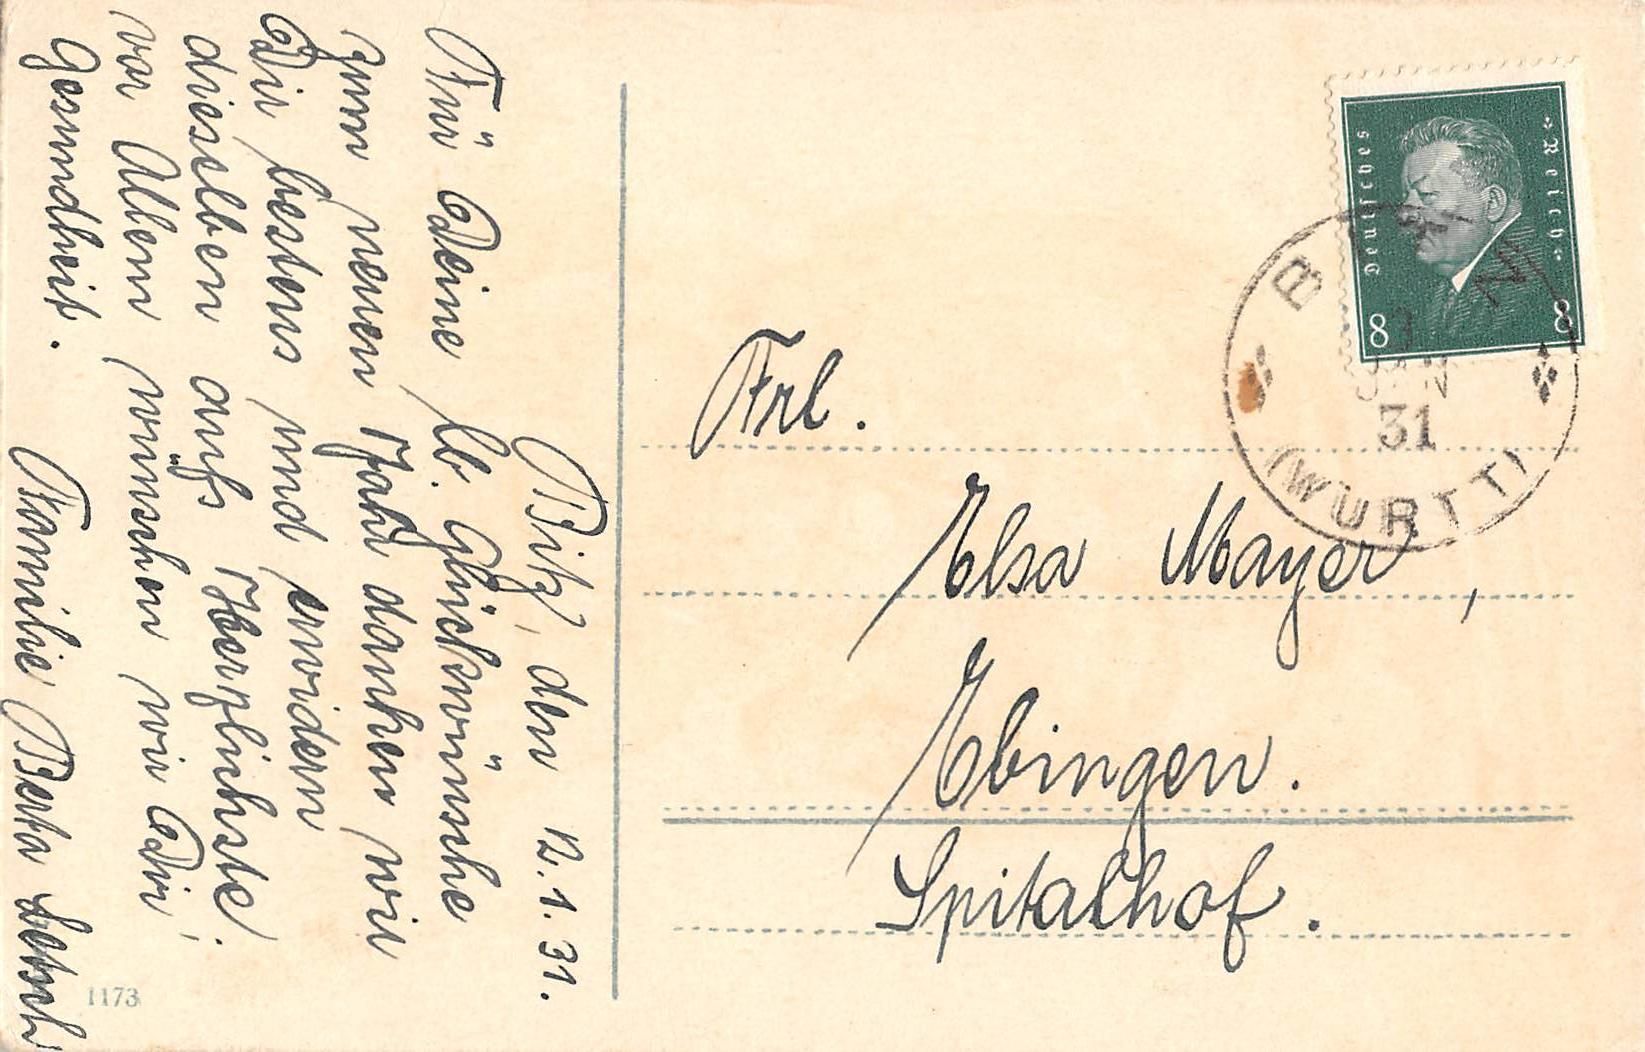 Bitz, den 12.1.31.
Für Deine lb. Glückwünsche
zum neuen Jahr danken wir
Dir bestens und erwidern
dieselben aufs Herzlichste.
vor Allem wünschen wir Dir
Gesundheit.
Familie Berta
Frl.
Elsa Mayer,
Ebingen.
Spitalhof.
Deutsches
Reich
8 8
BITZ
31
(WÜRTT)
1173